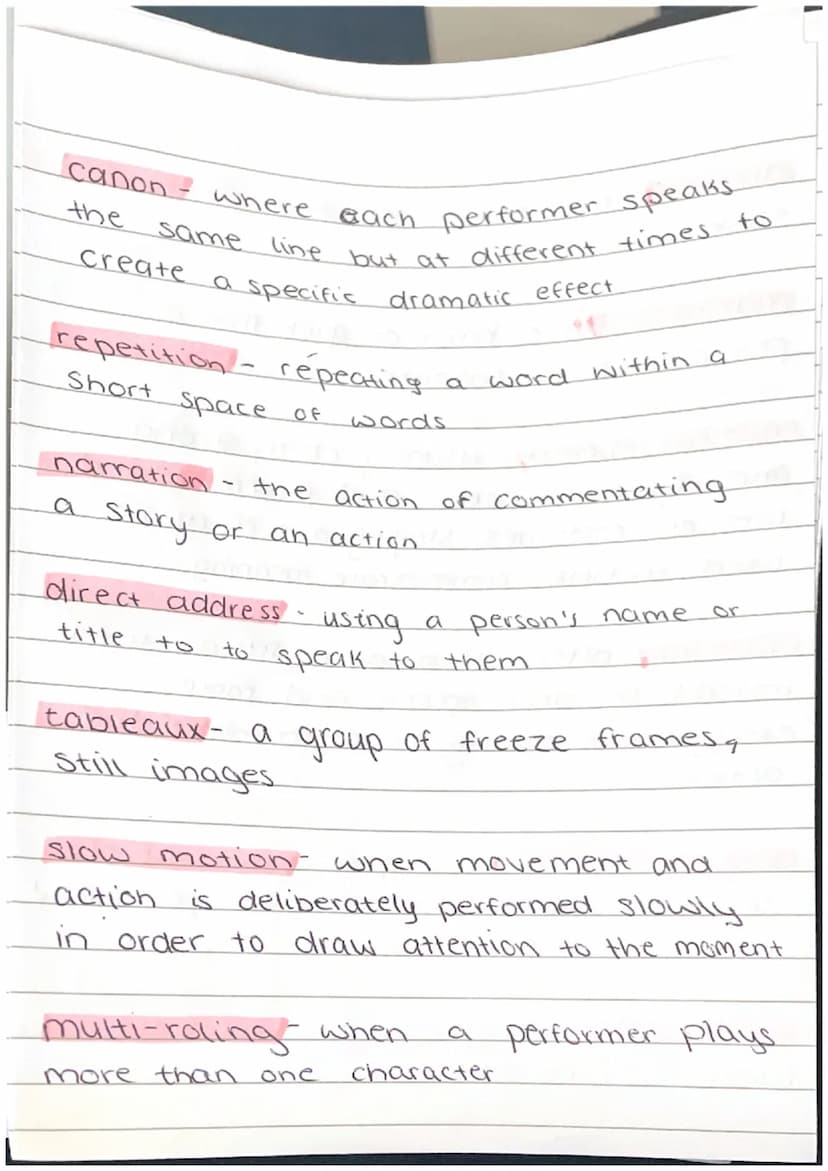 canon - where each performer speaks
the same line but at different times to
create a specific dramatic effect
repetition - repeating a word within a
short space of words
narration - the action of commentating
a story or an action
direct address - using a person's name or
title to to speak to them
tableaux - a group of freeze frames,
still images
slow motion - when movement and
action is deliberately performed slowly
in order to draw attention to the moment
multi-roling - when a performer plays
more than one character